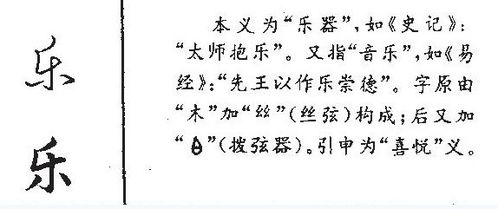 乐
乐
本义为“乐器”，如《史记》：
“太师抱乐”。又指“音乐”，如《易
经》：“先王以作乐崇德”。字原由
“木”加“丝”（丝弦）构成；后又加
“”（拨弦器）。引申为“喜悦”义。